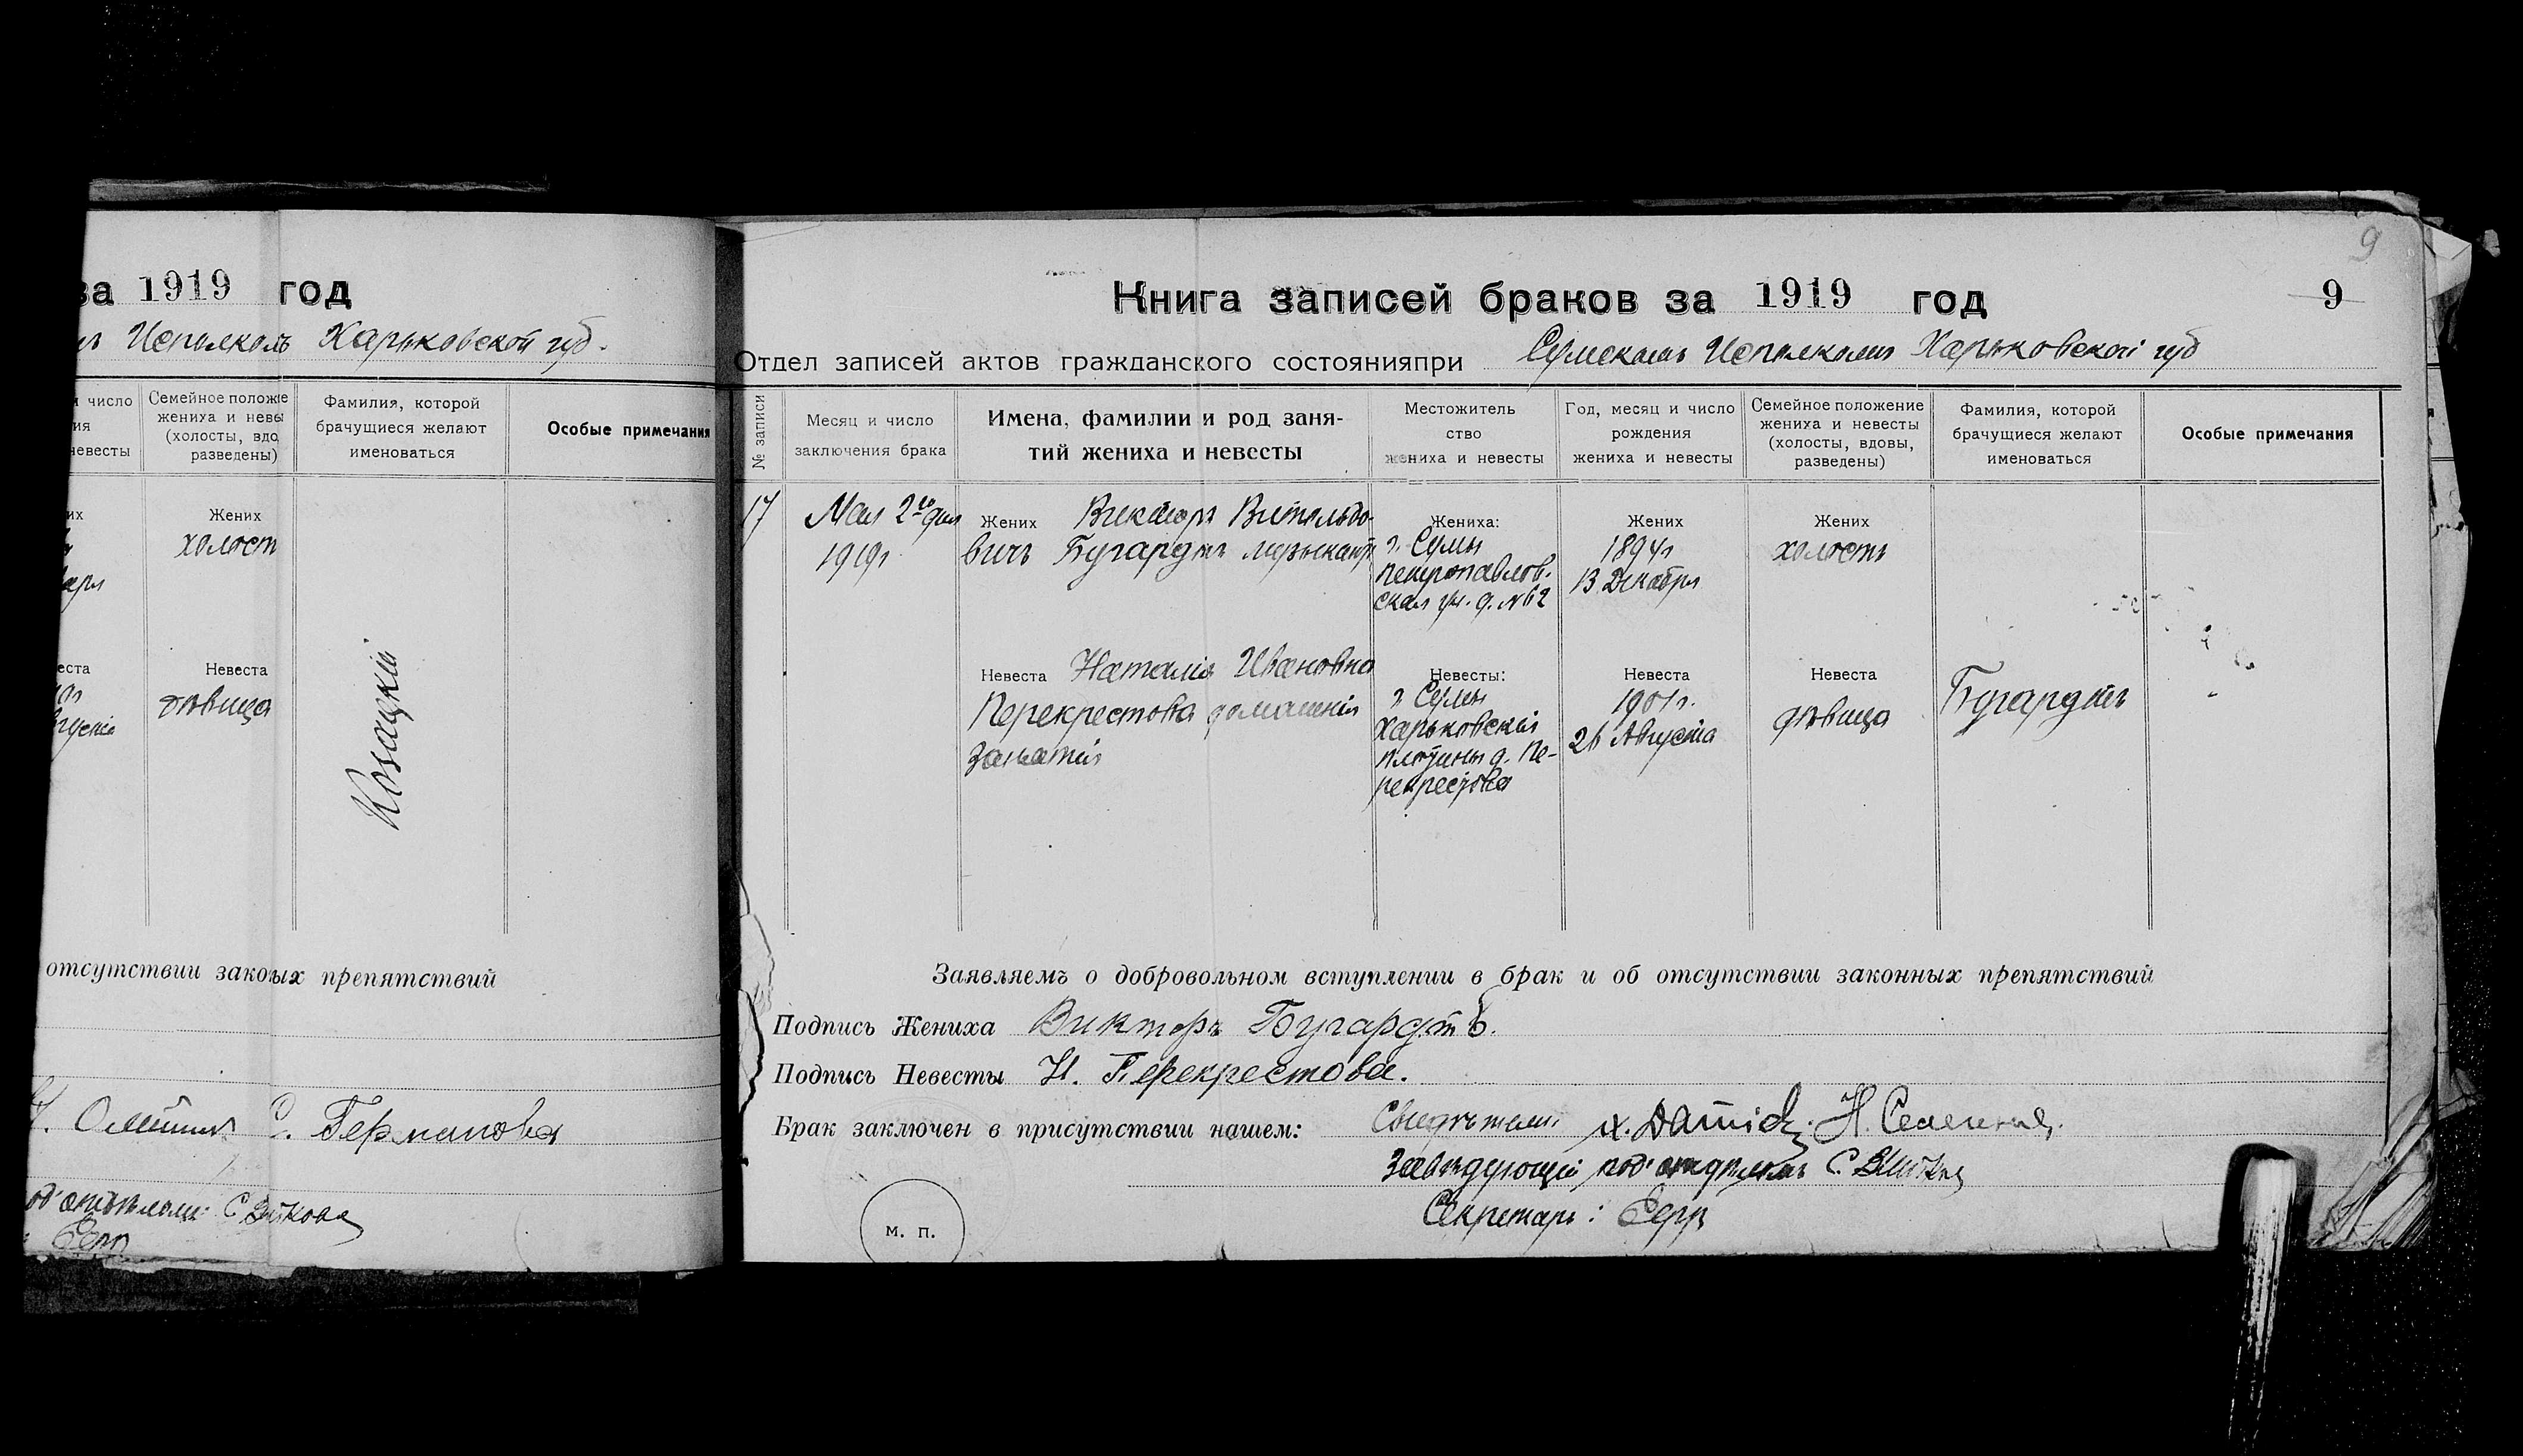 за 1919 год
Исполкомъ Харьковской губ.
число
Семейное полож
жениха и невы
(холосты, вдо
разведены)
невесты
Фамилия, которой
брачущиеся желают
именоваться
Особые примечания
Жених
холост
Невеста
дѣвица
Козацкій
отсутствии законых препятствий
С. Германова
9
Книга записей браков за 1919 год 9
Отдел записей актов гражданского состоянияпри Сумскомъ Исполкомѣ Харьковской губ
№ записи
Месяц и число
заключения брака
Имена, фамилии и род заня-
тий жениха и невесты
Местожитель
ство
жениха и невесты
Год, месяц и число
рождения
жениха и невесты
Семейное положение
жениха и невесты
(холосты, вдовы,
разведены)
Фамилия, которой
брачущиеся желают
именоваться
Особые примечания
17
Мая 2го дня
1919г.
Жених Викторъ Витольдо-
вичъ Бугардтъ музыкантъ
Жениха:
г. Сумы
Петропавлов-
ская ул. д. №62
Жених
1894г
13 Декабря
Жених
холостъ
Невеста Наталія Ивановна
Перекрестова домашнія
занятія
Невесты:
г. Сумы
Харьковскій
плотины д. Пе-
рекрестова
Невеста
1901г.
26 Августа
Невеста
дѣвица
Бугардтъ
Заявляемъ о добровольном вступлении в брак и об отсутствии законных препятствий
Подпись Жениха Викторъ Бугардтъ.
Подпись Невесты Н. Перекрестова.
Брак заключен в присутствии нашем: Свидѣтели:
Завѣдующій подъотдѣломъ С.
Секретарь:
м. п.